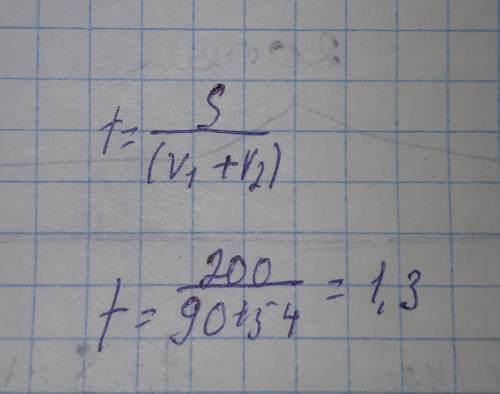 t = S / (V₁ + V₂)
t = 200 / 90+54 = 1,3